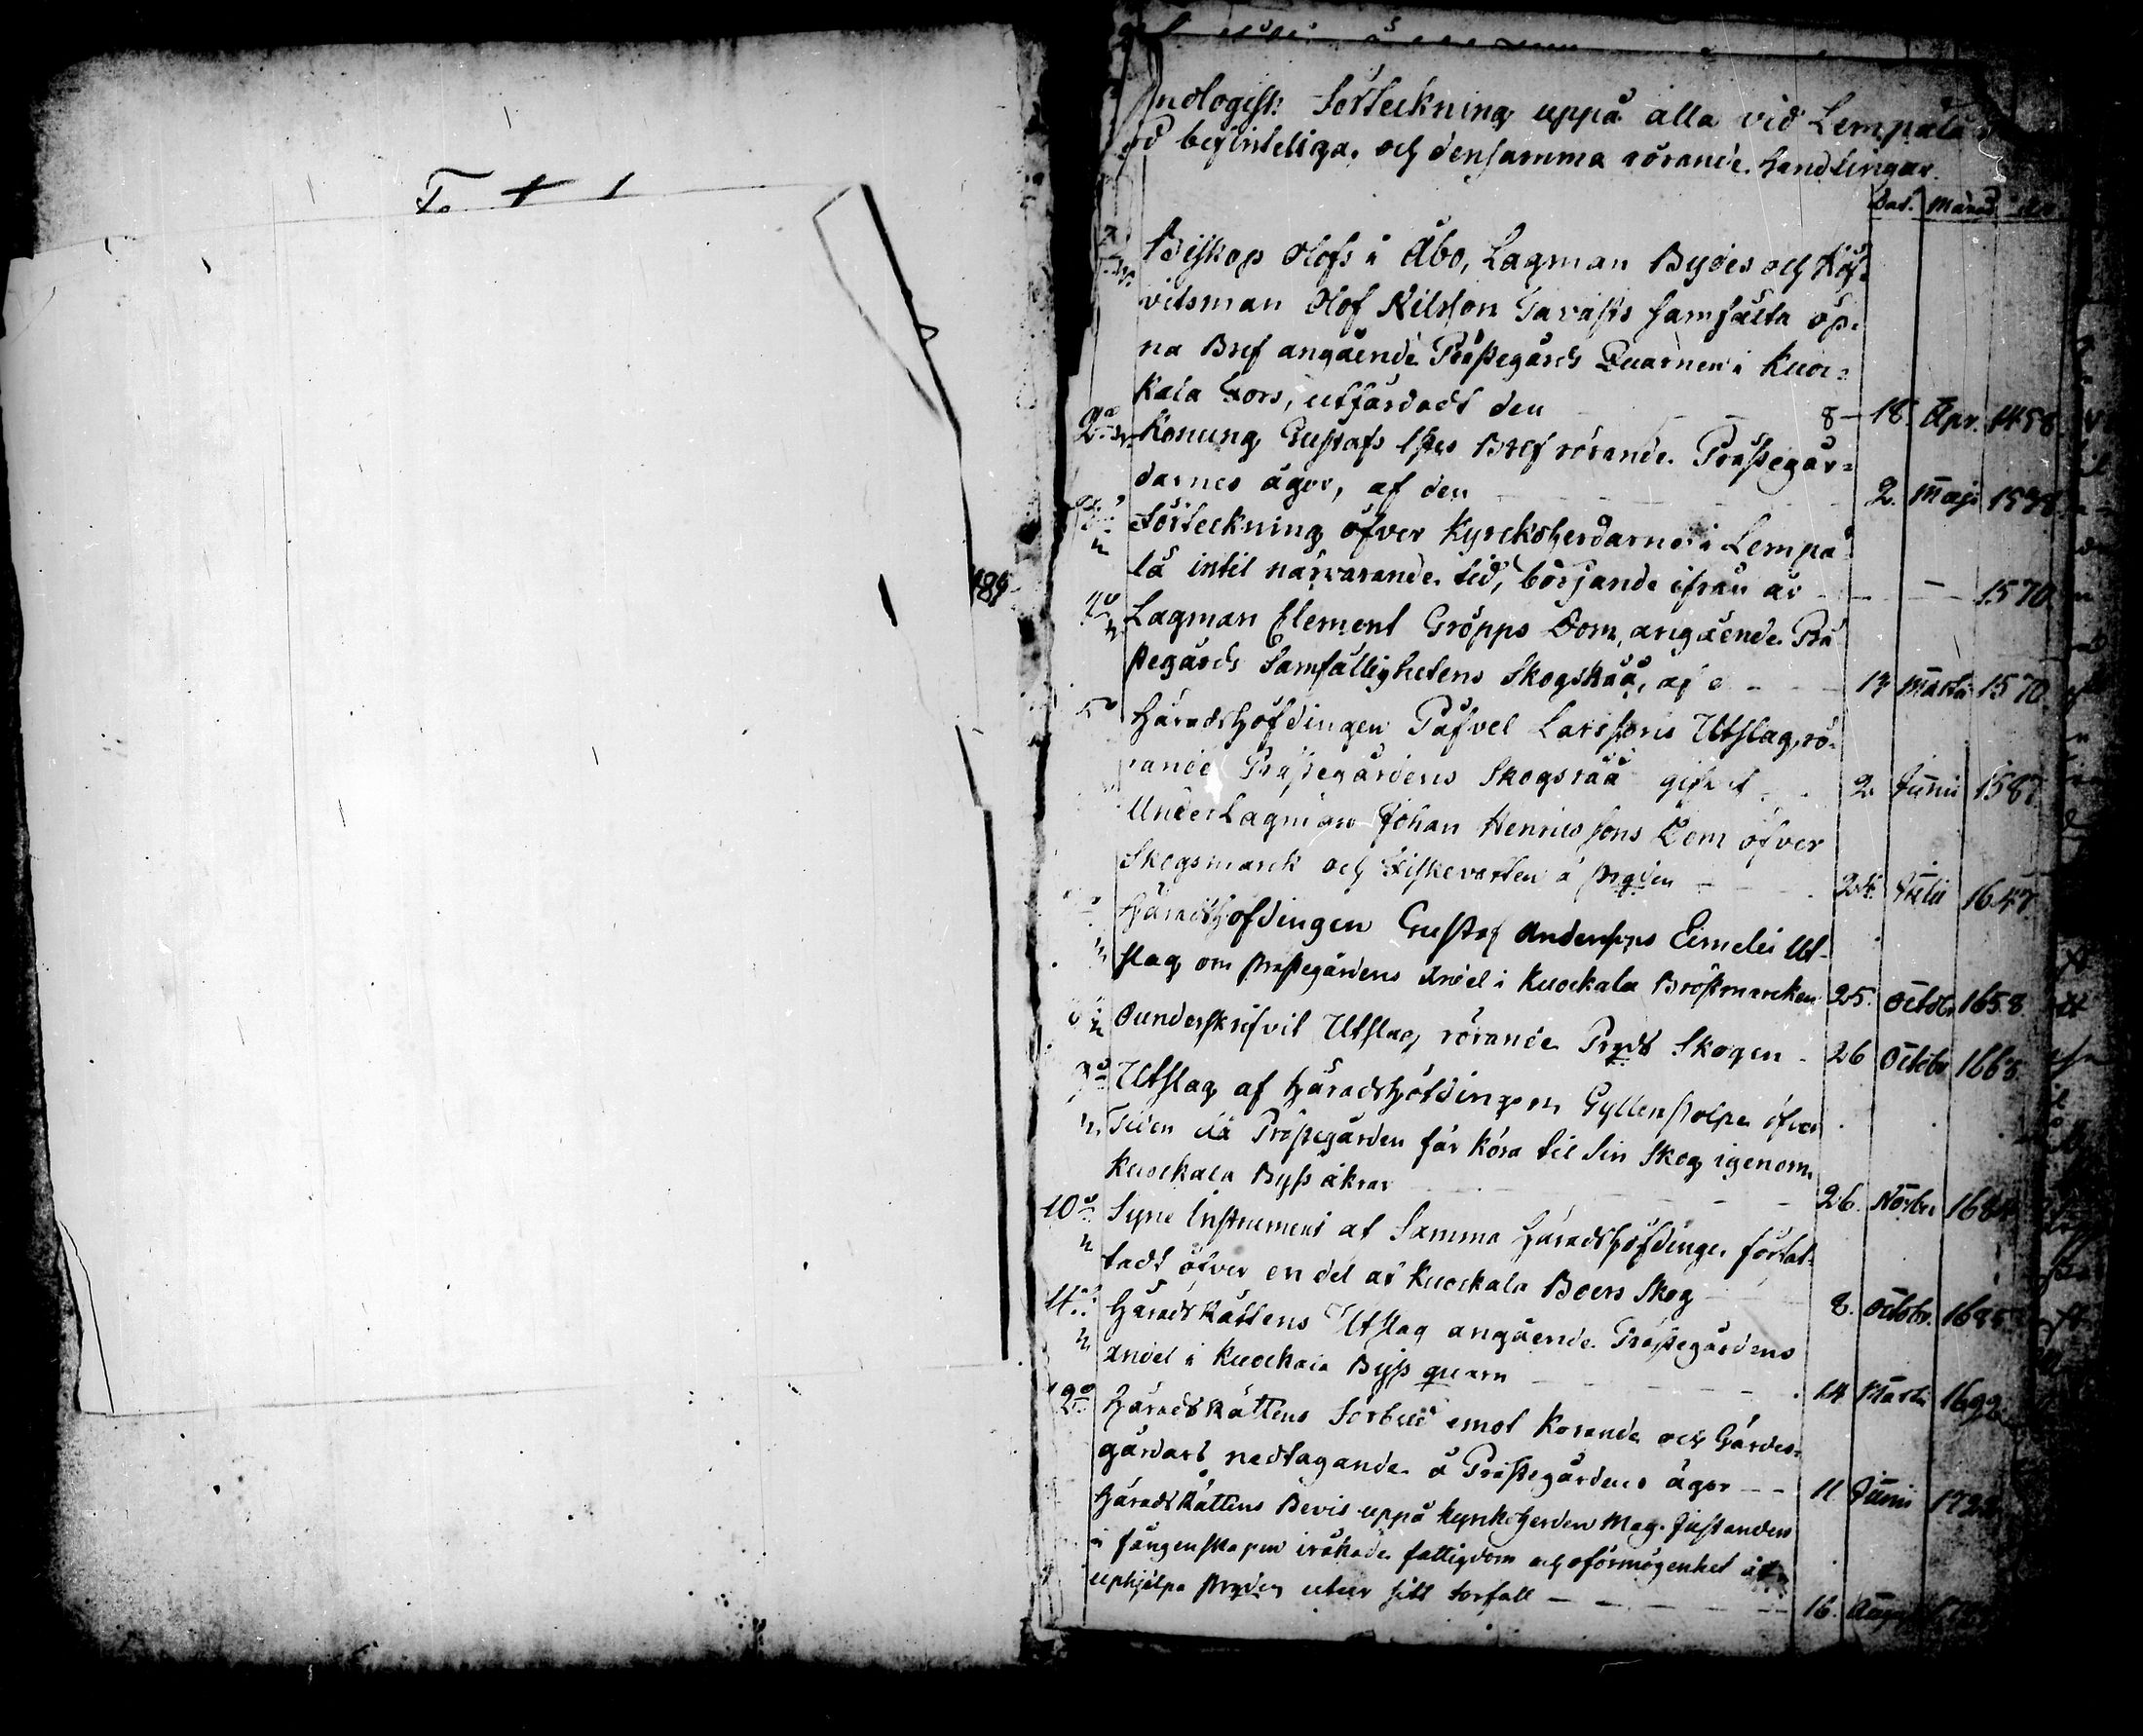 nologisk Förteckning uppå alla vid Lempälä
befinteliga, och densamma rörande Handlingar.
Dat. Månad
Biskop Olofs i Åbo, Lagman Bydes och Höf-
vitsman Olof Nilsson Tavasts samfälta öp-
na Bref angående Prästegårds Quarnen i Kuoc-
kala Fors, utfärdadt den 8 — 18. Apr. 1458
2do Konung Gustafs Istes Bref rörande Prästegår-
darnes ägor, af den 2. Maji
Förteckning öfver Kyrckoherdarne i Lempä-
lä intil närvarande tid, börjande ifrån år — — 1570.
Lagman Clement Gröpps Dom, angående Prä-
stegårds Samfällighetens Skogsråå, af d — 14 Martii 1570.
Häradshöfdingen Påfvel Larssons Utslag, rö-
rande Prästegårdens Skogsråå gifvet 2. Junii 1587.
Underlagman Johan Henricssons Dom öfver
Skogsmarck och Fiskevatten å prgden — 24. Julii 1647
Häradshöfdingen Gustaf Anderssons Eimelei Ut-
slag om prästegårdens andel i Kuockala Bröstmarcken 25. Octobr. 1658
Ounderskrifvit Utslag rörande Prgds Skogen - 26 Octobr 1665.
9o Utslag af Häradshöfdingen Gyllenstolpe öfver
Tiden då Prästegården får köra til Sin Skog igenom
Kuockala Byss åkrar — 26. Novbr 1684
10o Syne Instrument af Samma Häradshöfdinge författ-
tadt öfver en del af Kuockala Boers Skog 8. Octobr. 1685
11 HäradsRättens Utslag angående Prästegårdens
andel i Kuockala Byss quarn — 14 Martii 1692
12o HäradsRättens Förbud emot Körande och Gärdes-
gårdars nedtagande å Prästegårdens ägor — — 11. Junii
HäradsRättens Bevis uppå kyrkoherden Mag. Justanders
i fångenskapen iråkade fattigdom och oförmögenhet at
uphjälpa prgden utur sitt förfall — 16. Aug.